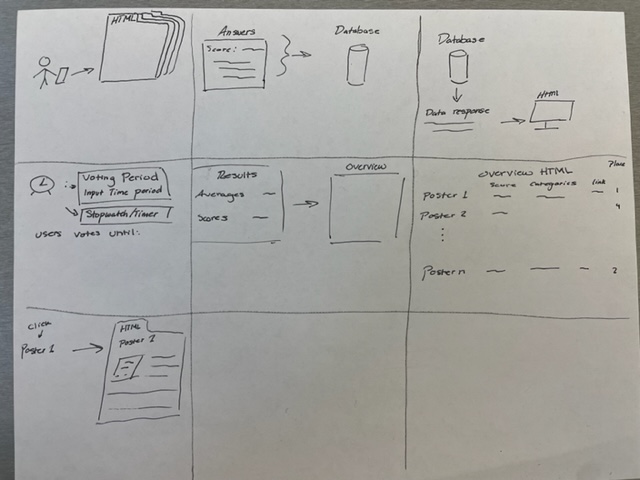 HTML
Answers
Score:
Database
Database
Data response
HTML
Voting Period
Input Time period
Stopwatch/timer
users votes until:
Results
Averages
Scores
Overview
Overview HTML
Score categories link Place
Poster 1 1
Poster 2 4
Poster n 2
click
Poster 1
HTML
Poster 1